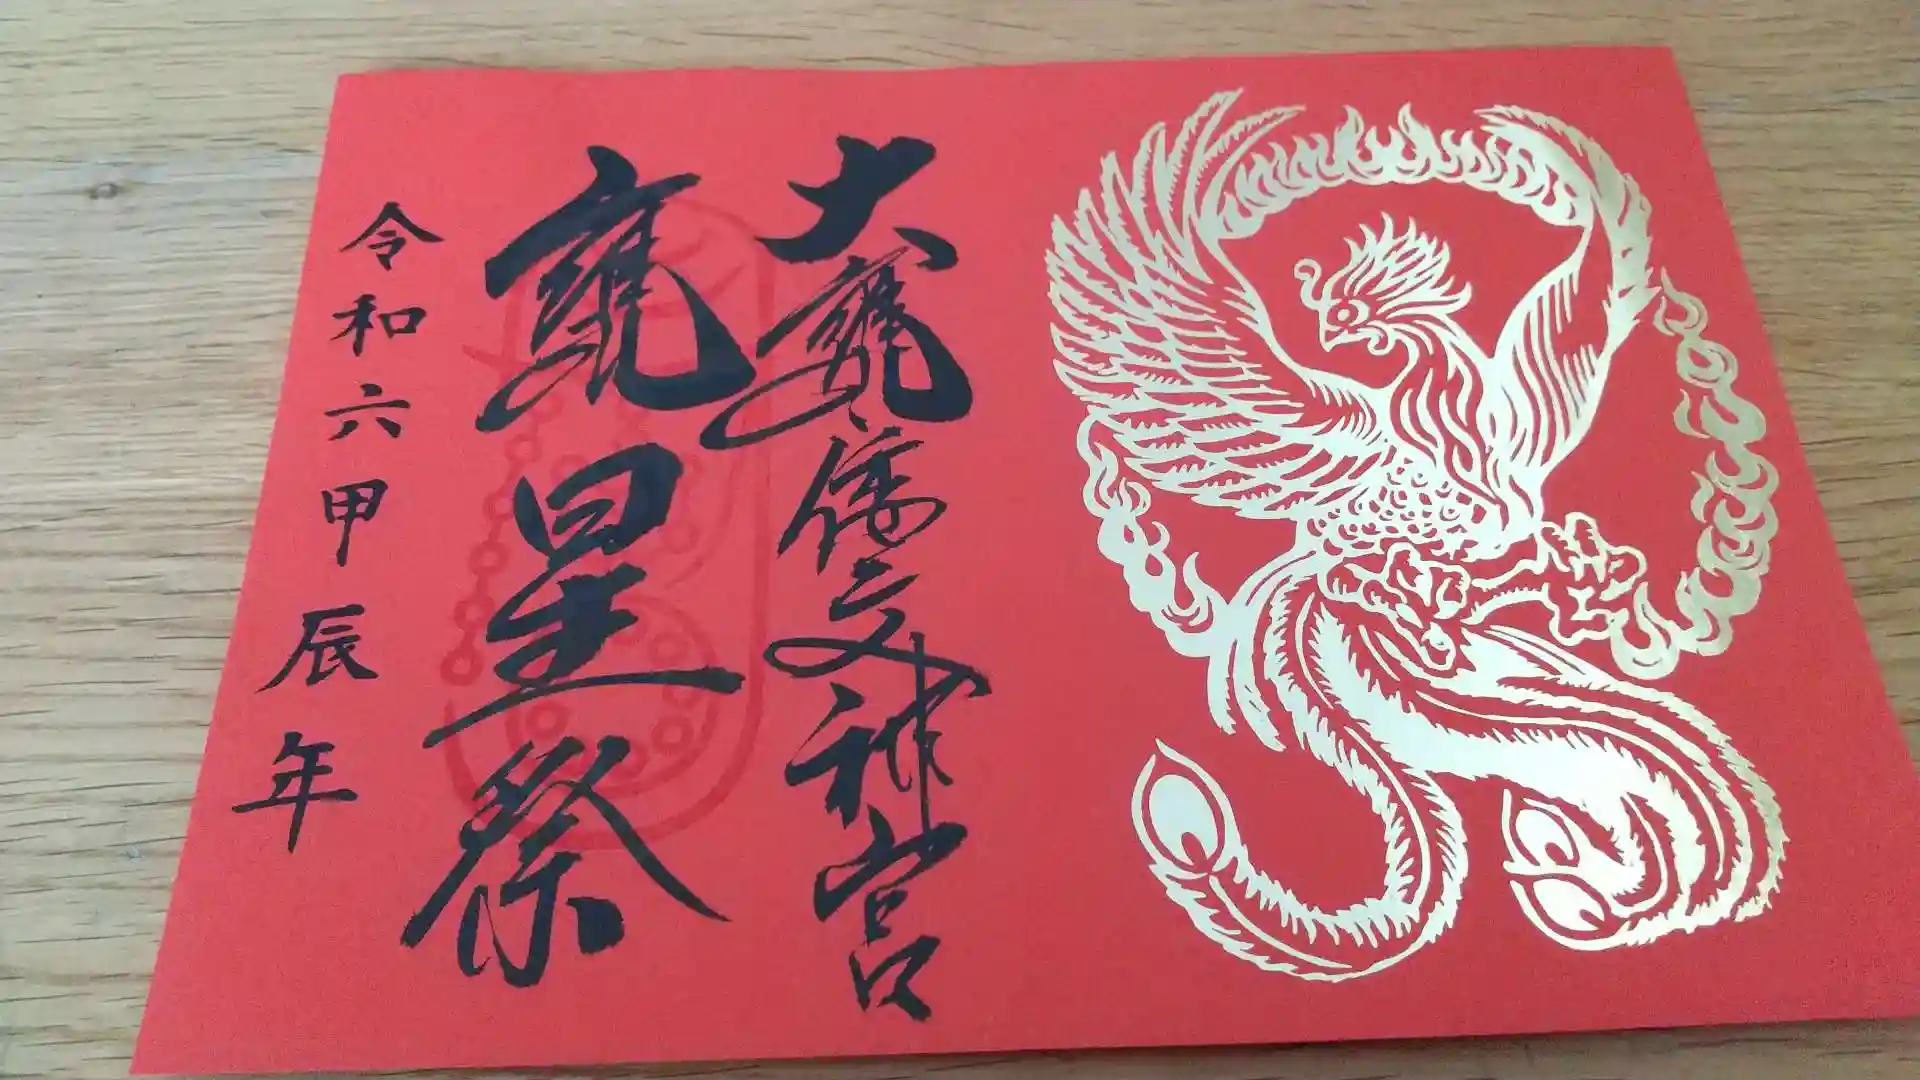 大甕倭文神宮
甕星祭
令和六甲辰年